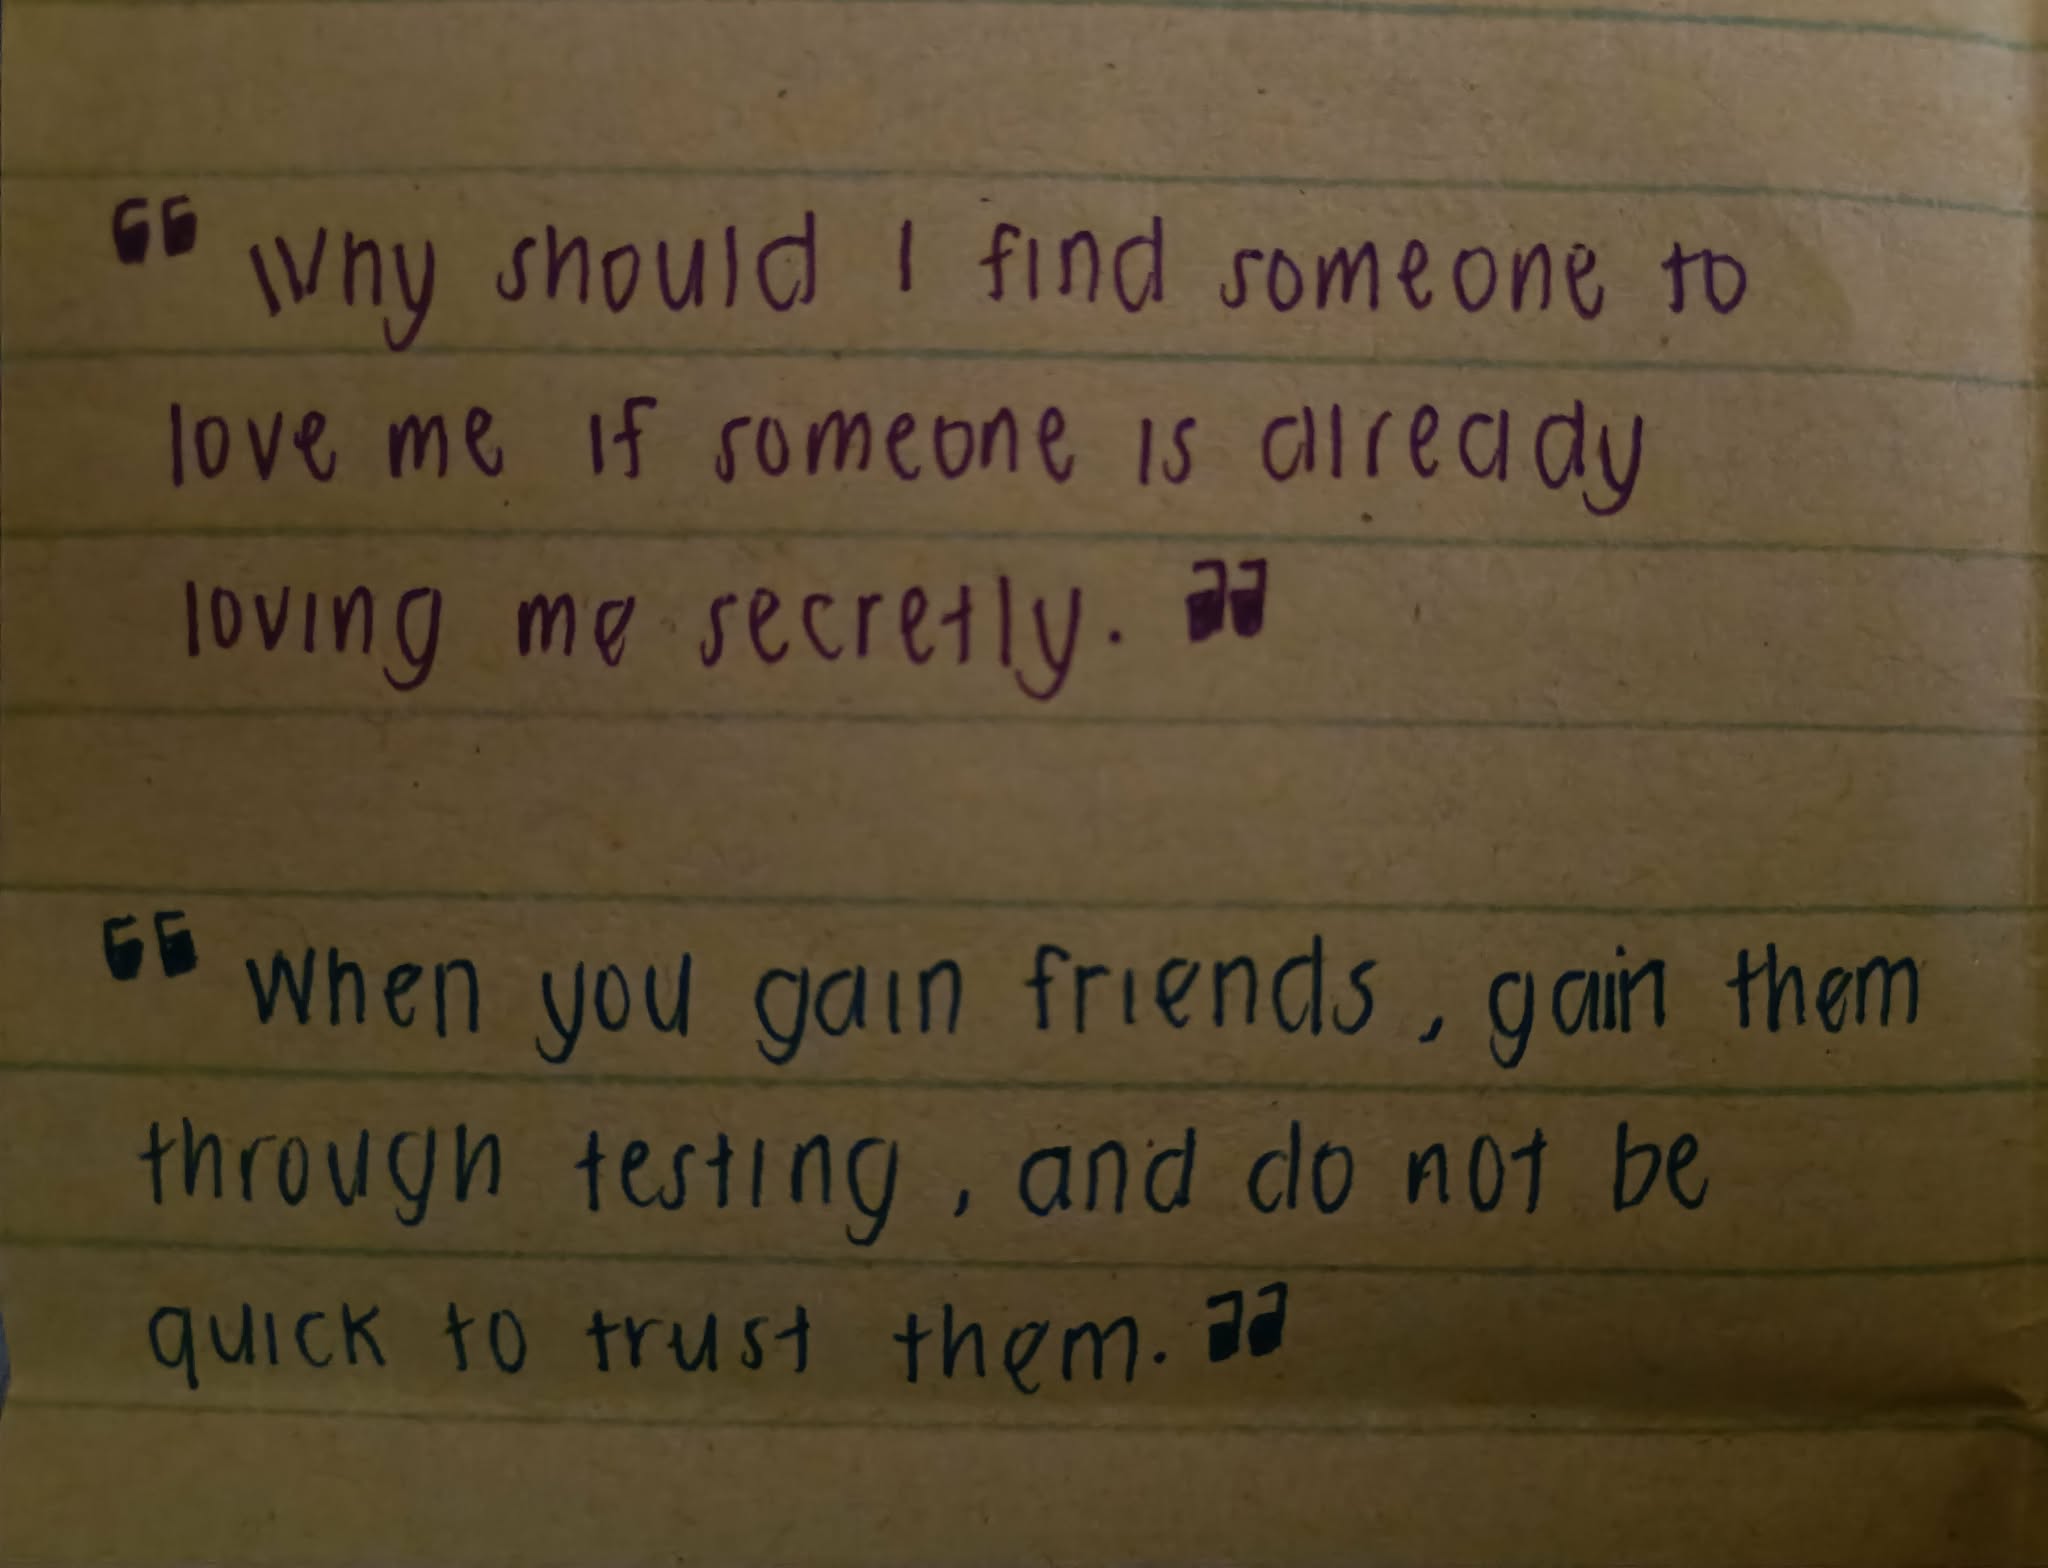 “Why should I find someone to
love me if someone is already
loving me secretly.”
“When you gain friends, gain them
through testing, and do not be
quick to trust them.”